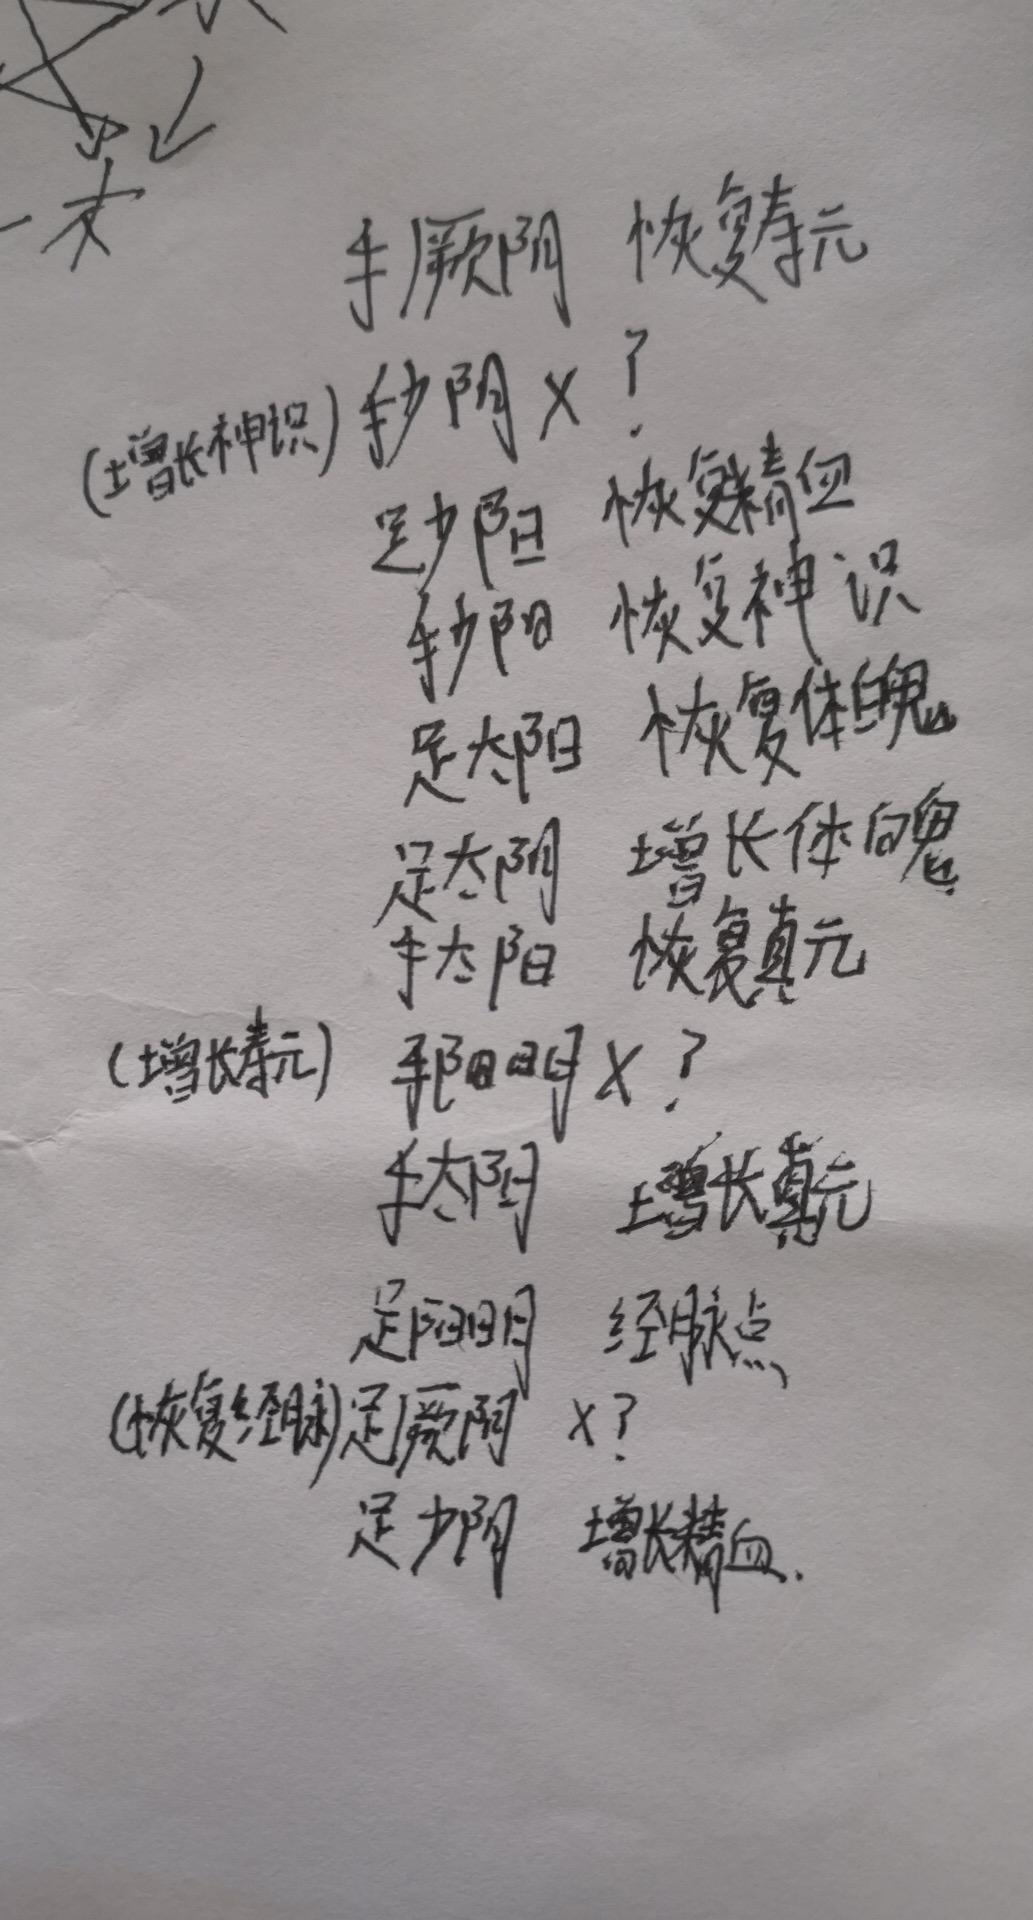 手厥阴 恢复寿元
(增长神识) 手少阴 x ?
足少阳 恢复精血
手少阳 恢复神识
足太阳 恢复体魄
足太阴 增长体魄
手太阳 恢复真元
(增长寿元) 手阳明 x ?
手太阴 增长真元
足阳明 经脉点
(恢复经脉) 足厥阴 x ?
足少阴 增长精血.